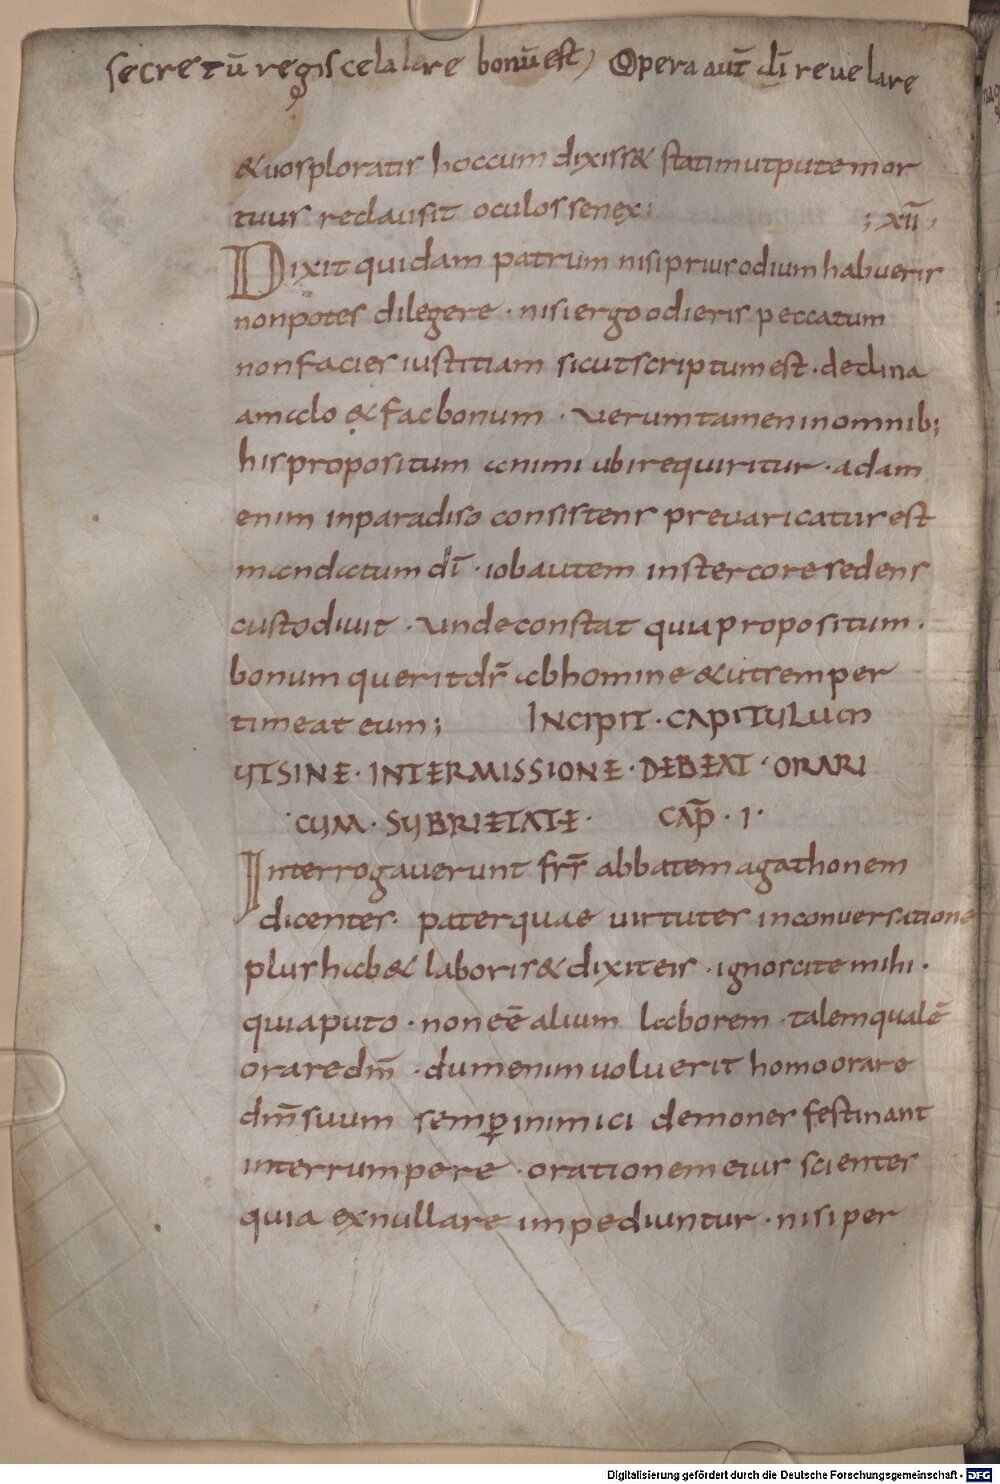 secretū regis celalare bonū est) Opera aut̄ dī revelare
& vos ploratis hoc cum dixiss& statim ut pute mor
tuus reclausit oculos senex; ; xii,
Dixit quidam patrum nisi prius odium habueris
non potes dilegere · nisi ergo odieris peccatum
non facies iustitiam sicut scriptum est · declina
a malo & fac bonum · verum tamen in omnib;
his propositum animi ubi requiritur · adam
enim in paradiso consistens prevaricatus est
mandatum dī · iob autem in stercore sedens
custodivit · unde constat quia propositum ·
bonum querit dr̄ ab homine & ut semper
timeat eum; INCIPIT · CAPITULUM
UT SINE · INTERMISSIONE · DEBEAT · ORARI
CUM · SUBRIETATE · CAP̄ · I ·
Interrogaverunt fr̄r abbatem agathonem
dicentes · pater quae virtutes in conversatione
plus hab& laboris & dixit eis · ignoscite mihi ·
quia puto · non eē alium laborem · talem qualē
orare dm̄ · dum enim voluerit homo orare
dm̄ suum semꝑ inimici demones festinant
interrumpere · orationem eius scientes
quia ex nulla re impediuntur · nisi per
Digitalisierung gefördert durch die Deutsche Forschungsgemeinschaft - DFG